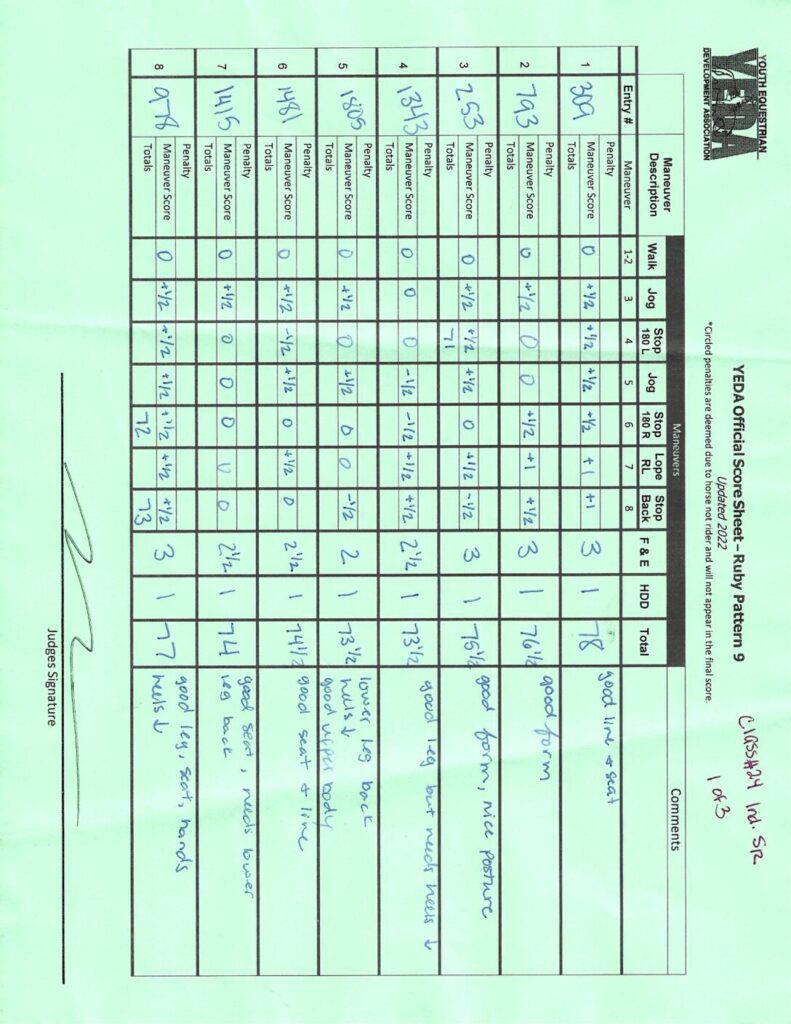 YOUTH EQUESTRIAN
YEDA
DEVELOPMENT ASSOCIATION
YEDA Official Score Sheet – Ruby Pattern 9
Updated 2022
*Circled penalties are deemed due to horse not rider and will not appear in the final score.
Class#24 Ind. SR.
1 of 3
Maneuvers
Maneuver Description Walk Jog Stop 180 L Jog Stop 180 R Lope RL Stop Back F & E HDD Total Comments
Entry # Maneuver 1-2 3 4 5 6 7 8
1 309 Penalty
Maneuver Score 0 +1/2 +1/2 +1/2 +1/2 +1 +1 3 1 78 good line + seat
Totals
2 793 Penalty
Maneuver Score 0 +1/2 0 0 +1/2 +1 +1/2 3 1 76 1/2 good form
Totals
3 253 Penalty
Maneuver Score 0 +1/2 +1/2 +1/2 0 +1/2 -1/2 3 1 75 1/2 good form, nice posture
Totals 71
4 1343 Penalty
Maneuver Score 0 0 0 -1/2 -1/2 +1/2 +1/2 2 1/2 1 73 1/2 good leg but needs heels ↓
Totals
5 1805 Penalty lower leg back
Maneuver Score 0 +1/2 0 +1/2 0 0 -1/2 2 1 73 1/2 heels ↓
Totals good upper body
6 1481 Penalty
Maneuver Score 0 +1/2 -1/2 +1/2 0 +1/2 0 2 1/2 1 74 1/2 good seat + line
Totals
7 1415 Penalty
Maneuver Score 0 +1/2 0 0 0 0 0 2 1/2 1 74 good seat, needs lower
Totals leg back
8 978 Penalty
Maneuver Score 0 +1/2 +1/2 +1/2 +1/2 +1/2 +1/2 3 1 77 good leg, seat, hands
Totals 72 73 heels ↓
Judges Signature